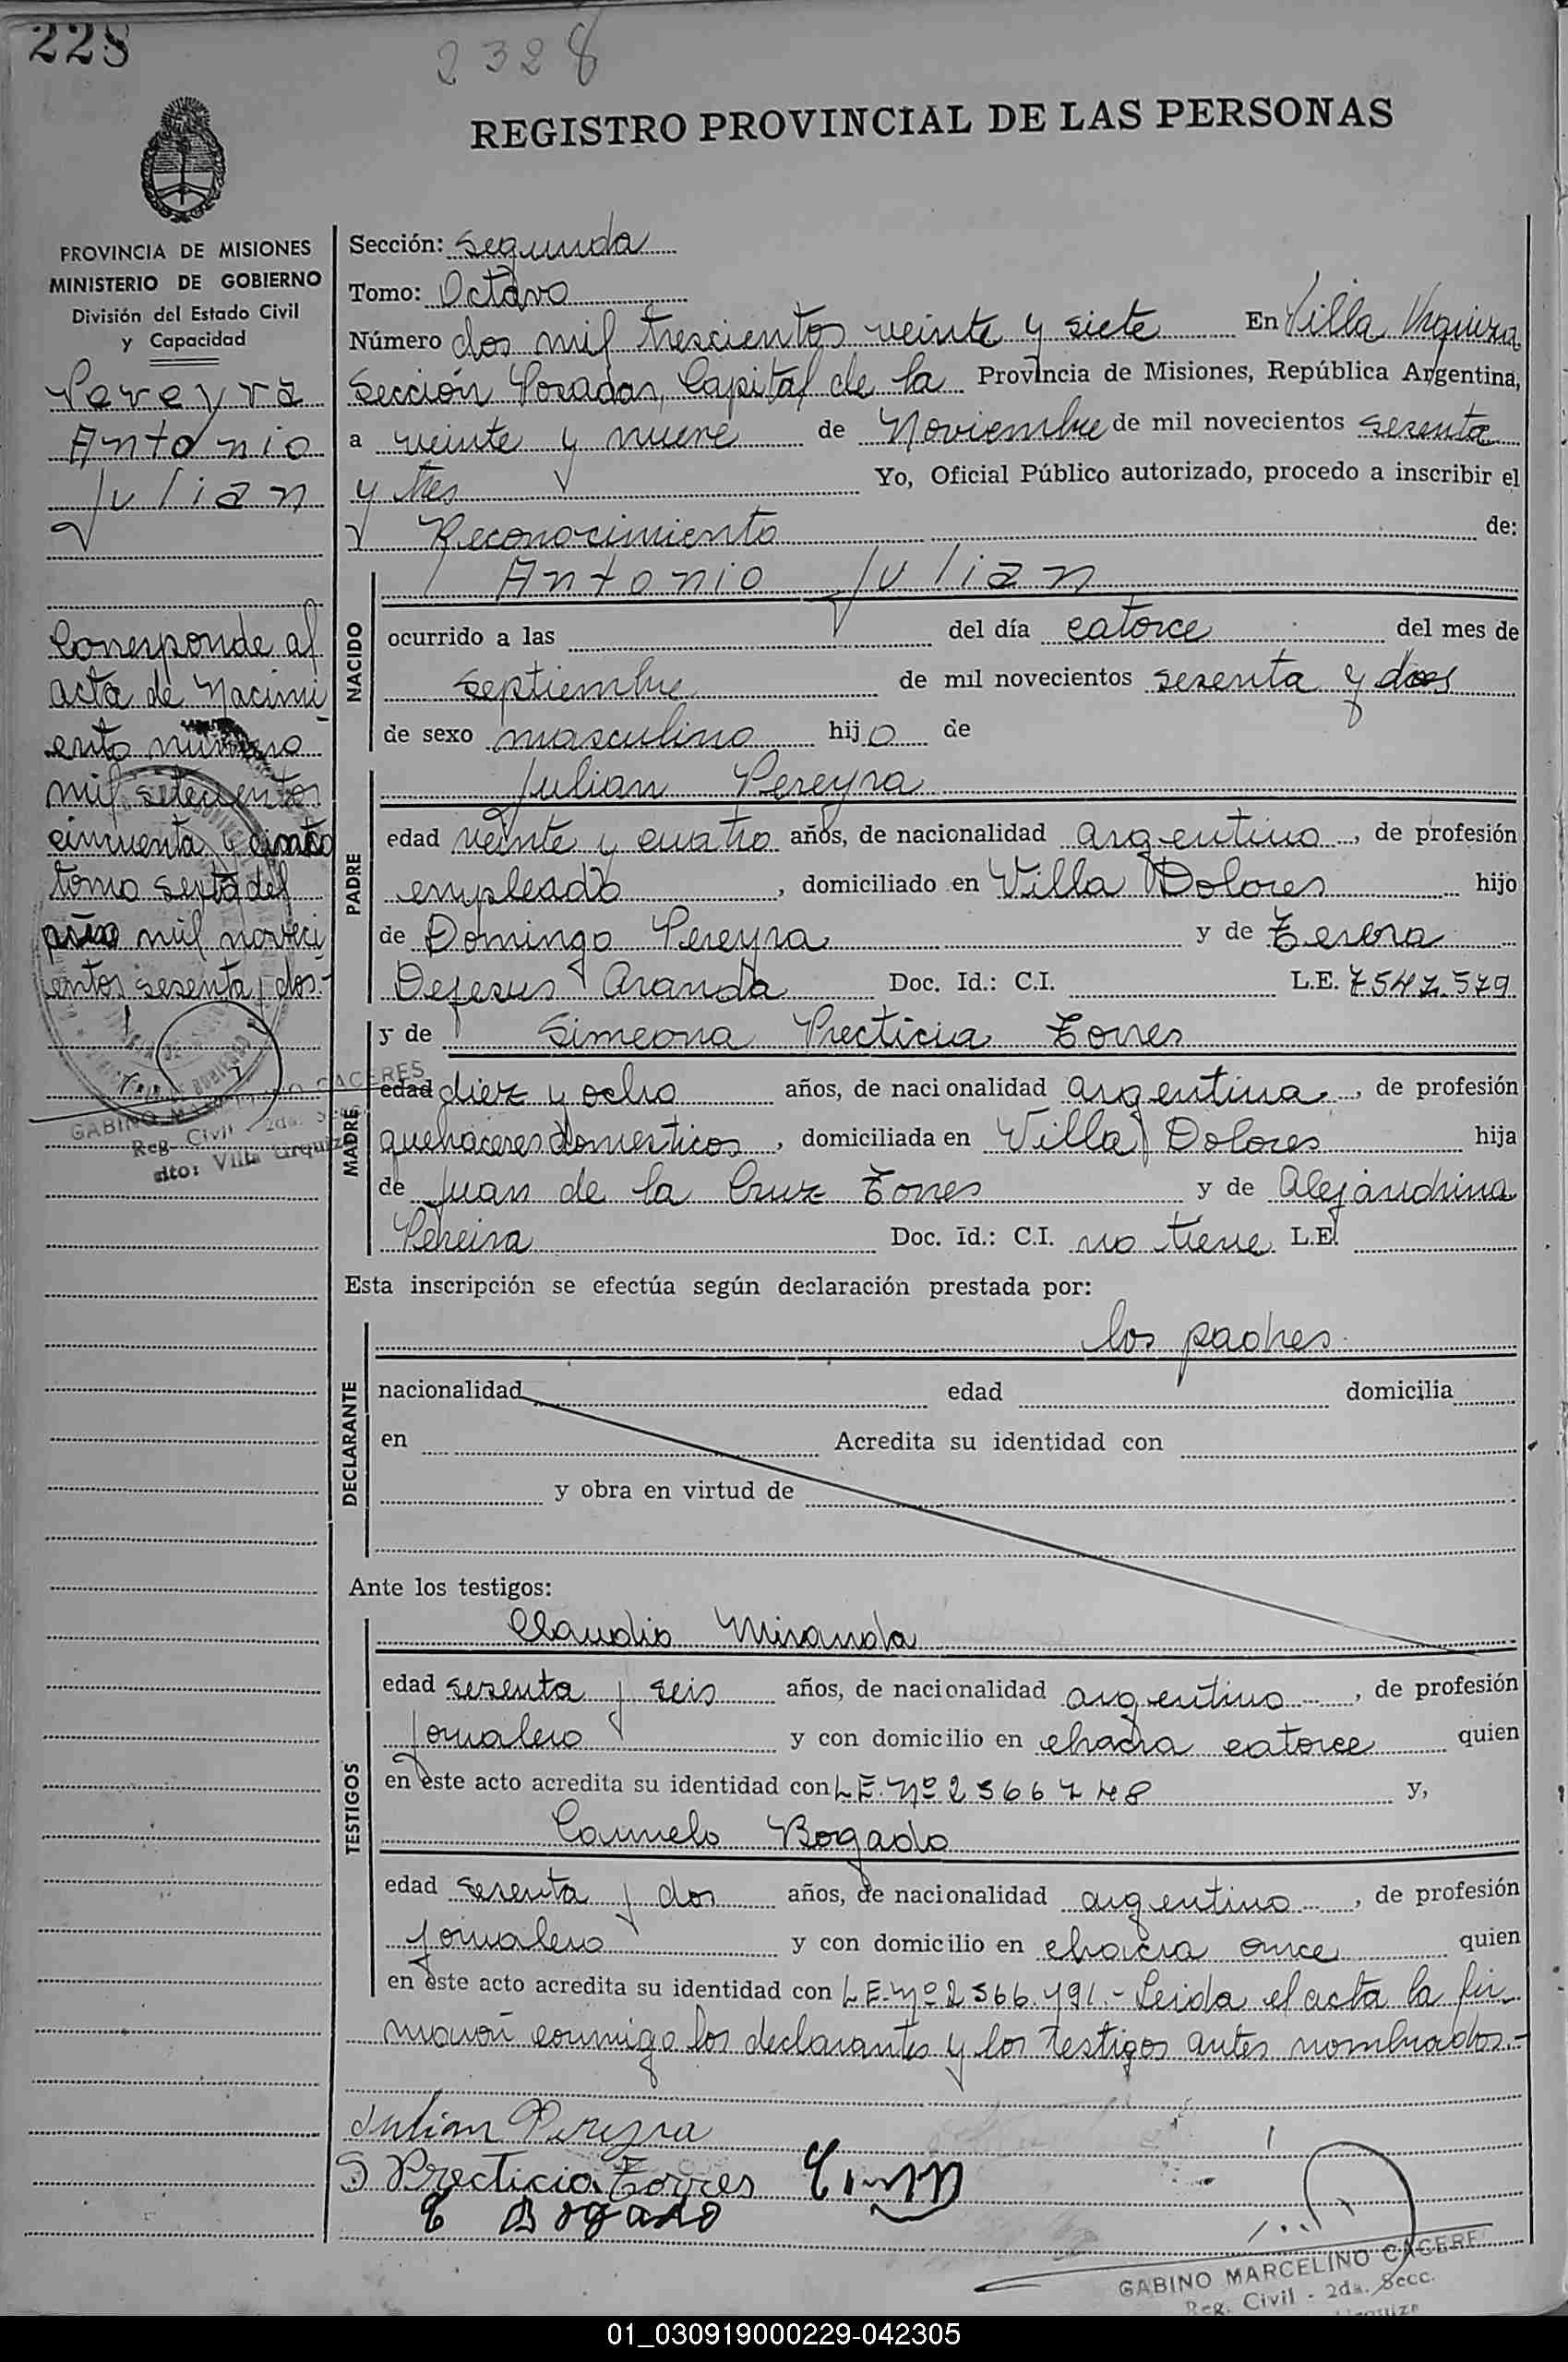 228
2328
REGISTRO PROVINCIAL DE LAS PERSONAS
PROVINCIA DE MISIONES
MINISTERIO DE GOBIERNO
División del Estado Civil
y Capacidad
Pereyra
Antonio
Julian
Corresponde al
acta de Nacimi
ento numero
mil setecientos
cincuenta y cinco
tomo sexto del
año mil noveci
entos sesenta y dos.-
GABINO MARCELINO CACERES
Reg. Civil - 2da. Sec.
sito: Villa Urquiza
Sección: Segunda
Tomo: Octavo
Número dos mil trescientos veinte y siete En Villa Urquiza
Sección Posadas, Capital de la Provincia de Misiones, República Argentina,
a veinte y nueve de Noviembre de mil novecientos sesenta
y tres Yo, Oficial Público autorizado, procedo a inscribir el
Reconocimiento de:
NACIDO
Antonio Julian
ocurrido a las del día catorce del mes de
septiembre de mil novecientos sesenta y dos
de sexo masculino hijo de
PADRE
Julian Pereyra
edad veinte y cuatro años, de nacionalidad argentino, de profesión
empleado, domiciliado en Villa Dolores hijo
de Domingo Pereyra y de Teresa
Dejesus Aranda Doc. Id.: C.I. L.E. 7547.579
MADRE
y de Simeona Precticia Torres
edad diez y ocho años, de nacionalidad argentina, de profesión
quehaceres domesticos, domiciliada en Villa Dolores hija
de Juan de la Cruz Torres y de Alejandrina
Pereira Doc. Id.: C.I. no tiene L.E.
Esta inscripción se efectúa según declaración prestada por:
DECLARANTE
los padres
nacionalidad edad domicilia
en Acredita su identidad con
y obra en virtud de
Ante los testigos:
TESTIGOS
Claudio Miranda
edad sesenta y seis años, de nacionalidad argentino, de profesión
jornalero y con domicilio en chacra catorce quien
en este acto acredita su identidad con L.E. Nº 2566748 y,
Carmelo Bogado
edad sesenta y dos años, de nacionalidad argentino, de profesión
jornalero y con domicilio en chacra once quien
en este acto acredita su identidad con L.E. Nº 2566.491.- Leida el acta la fir
maron conmigo los declarantes y los testigos antes nombrados.-
Julian Pereyra
S Precticia Torres
C Bogado
GABINO MARCELINO CACERE
Reg. Civil - 2da. Secc.
01_030919000229-042305